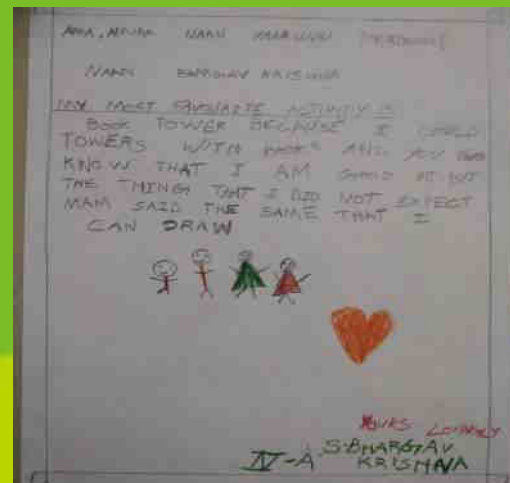 NAAN
NAAN BHARGAV KRISHNA
MY MOST FAVOURITE ACTIVITY IS
BOOK TOWER BECAUSE I COULD
TOWERS WITH BOOKS AND YOU
KNOW THAT I AM GOOD AT BUT
THE THINGS THAT I DID NOT EXPECT
MAM SAID THE SAME THAT I
CAN DRAW
YOURS LOVINGLY
S.BHARGAV
IV-A KRISHNA